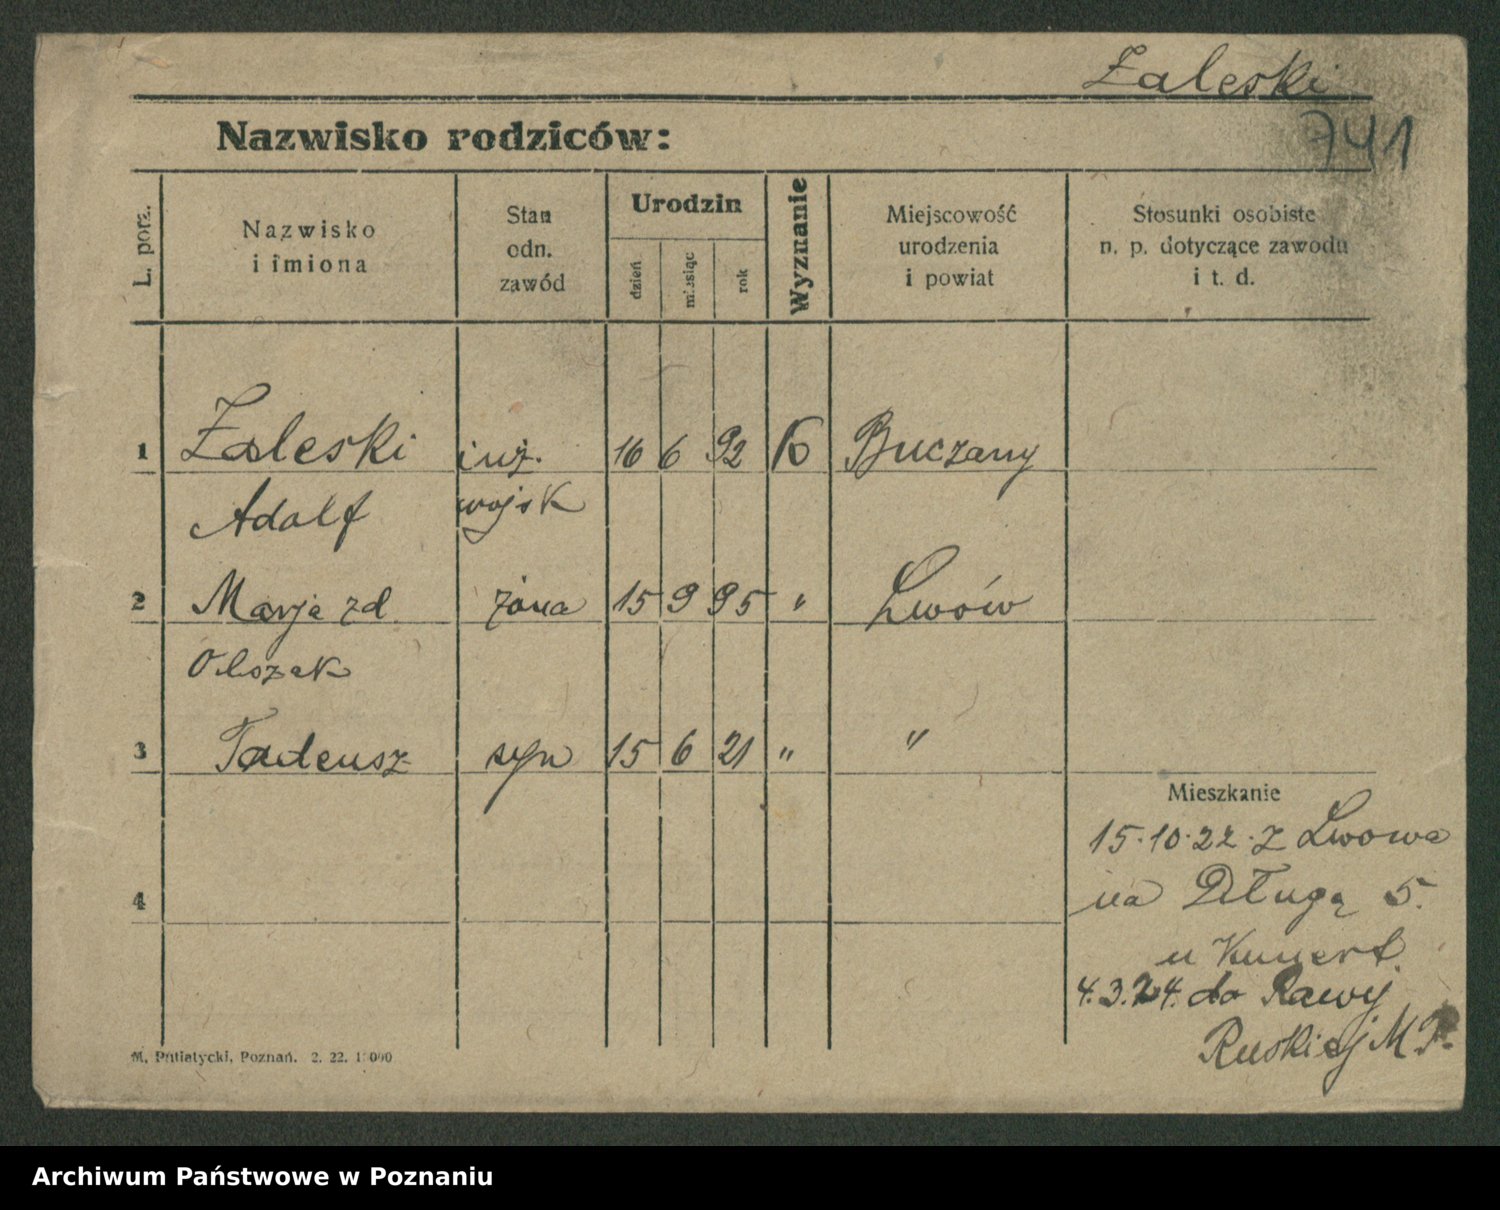 Zaleski
Nazwisko rodziców:
741
L. porz.
Nazwisko
i imiona
Stan
odn.
zawód
Urodzin
dzień
miesiąc
rok
Wyznanie
Miejscowość
urodzenia
i powiat
Stosunki osobiste
n. p. dotyczące zawodu
i t. d.
1 Zaleski inż. 16 6 92 K Buczany
Adolf wojsk
2 Marja zd. żona 15 9 95 " Lwów
Olszak
3 Tadeusz syn 15 6 21 " "
Mieszkanie
15.10.22. z Lwowa
4
na Długą 5.
u Kunert
4.3.24. do Rawy
Ruskiej MP.
M. Putiatycki, Poznań. 2. 22. 1 000
Archiwum Państwowe w Poznaniu